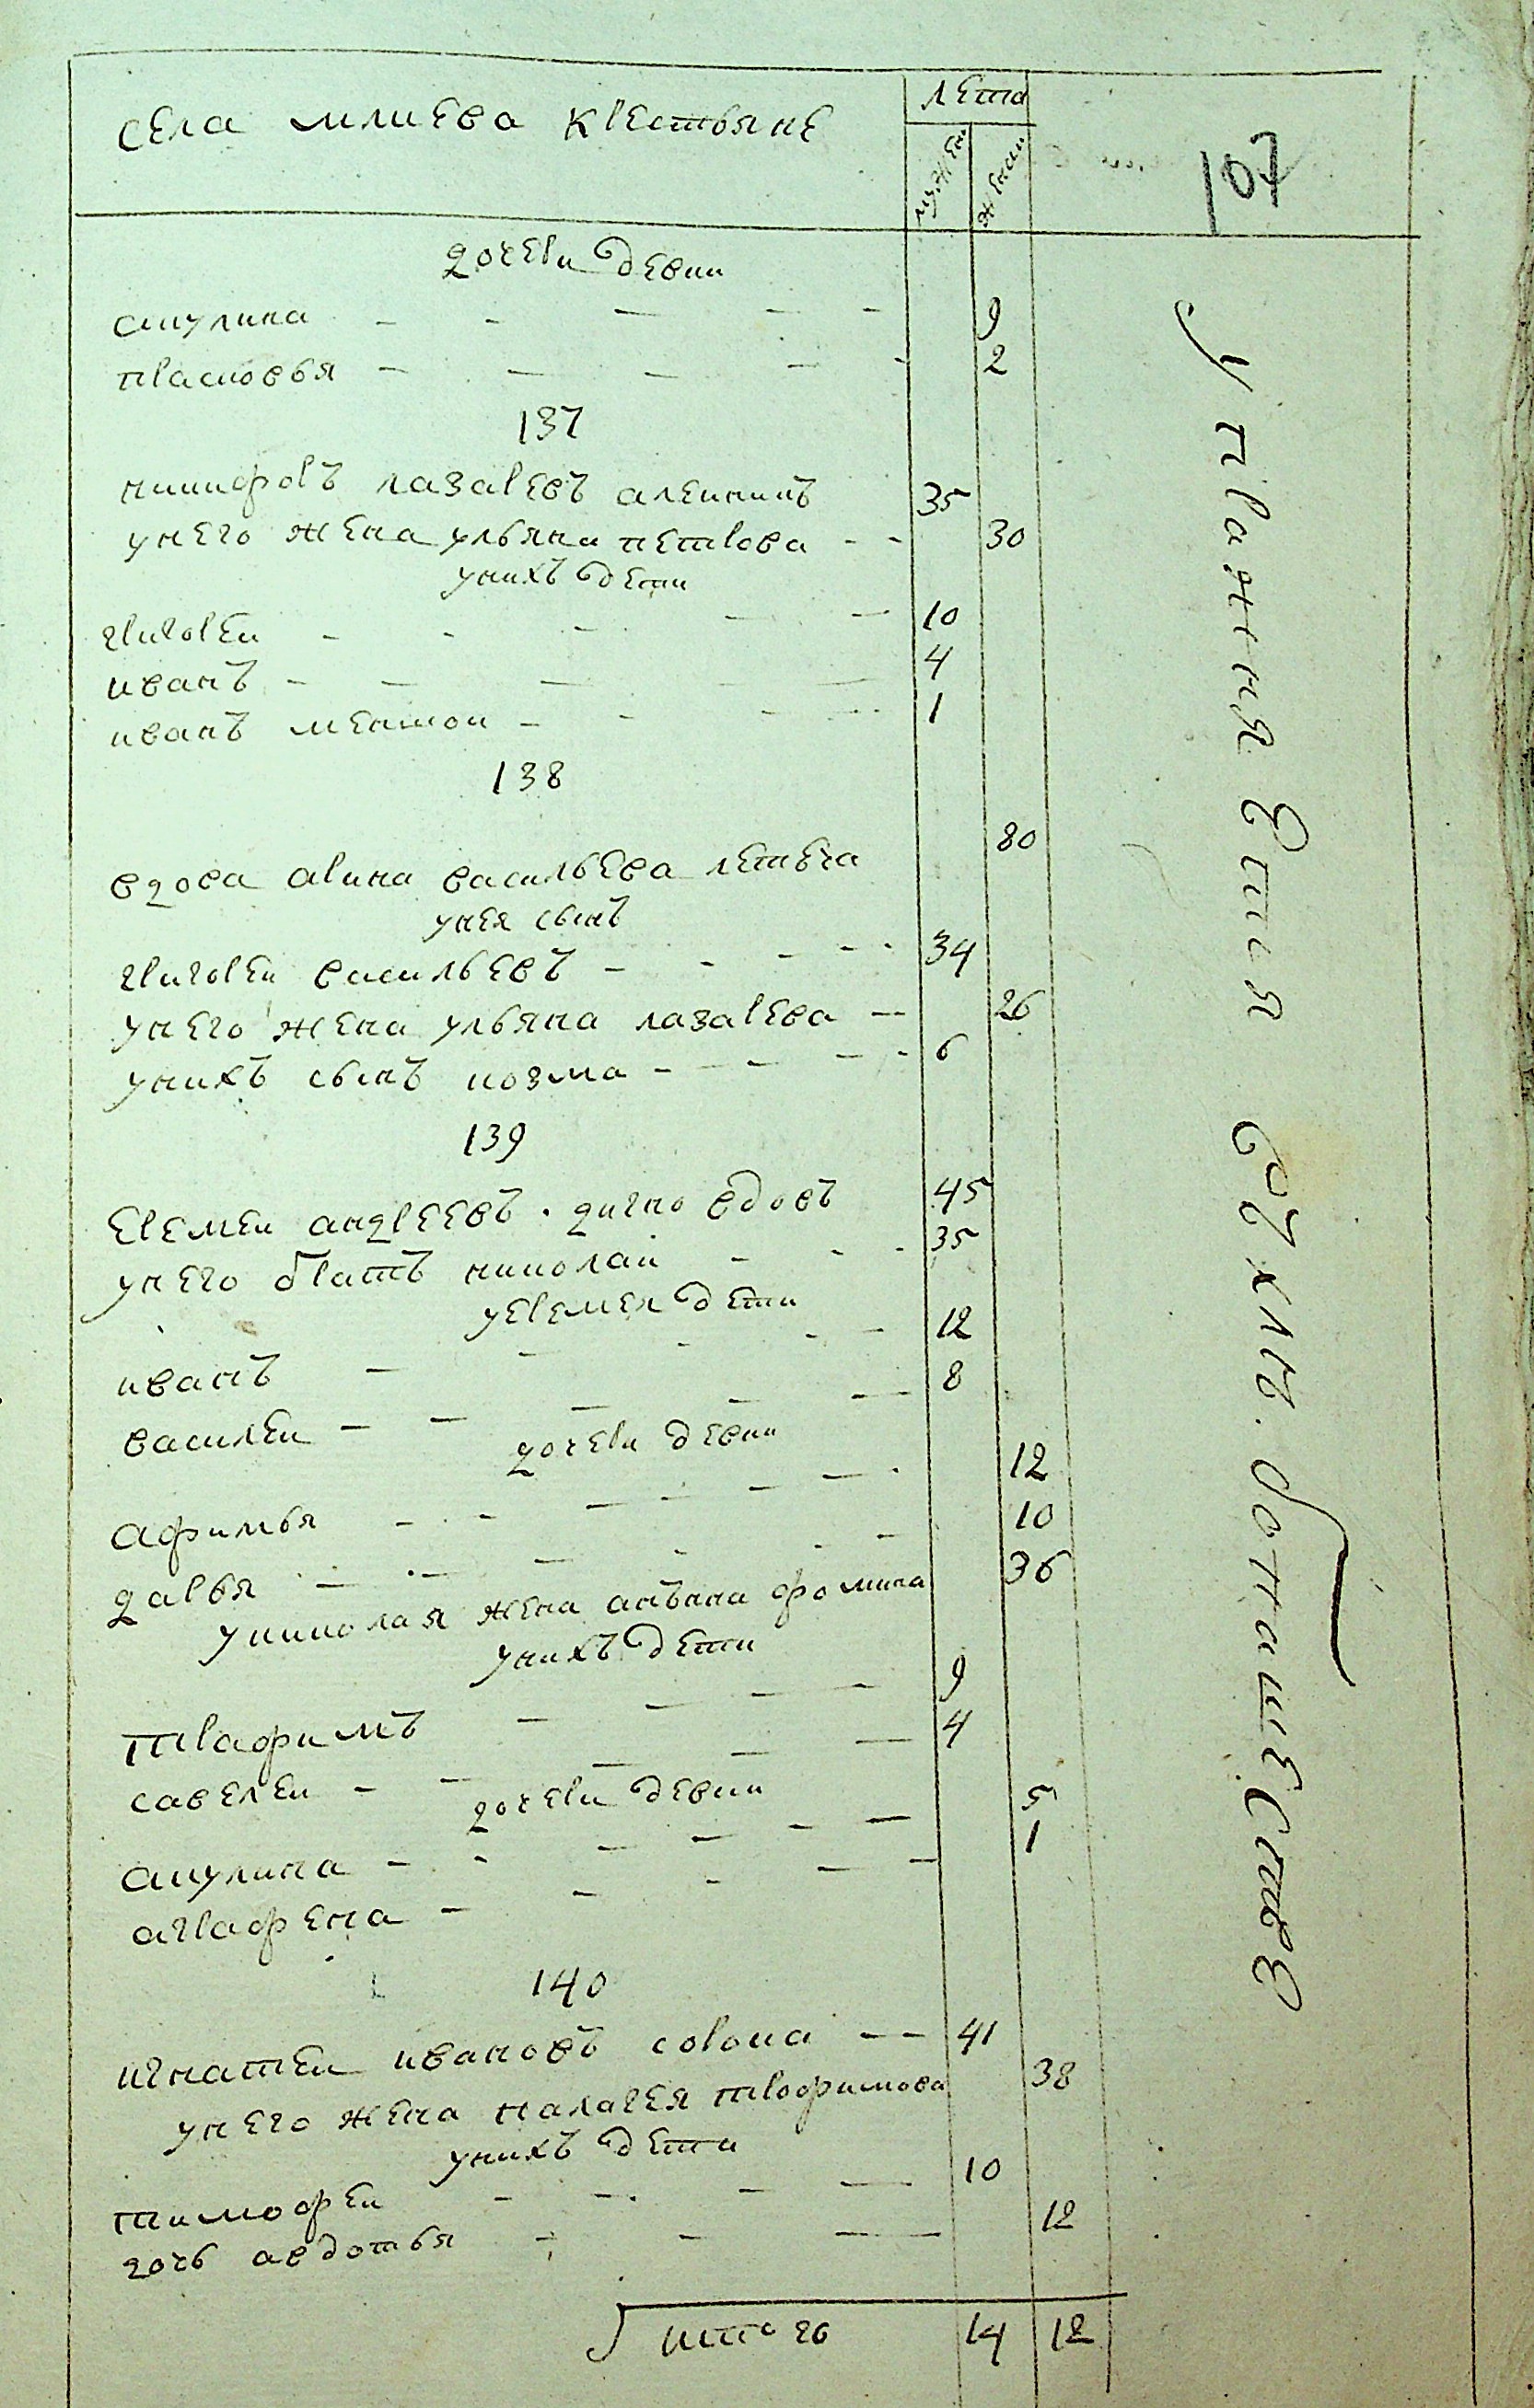 села млиева крестьяне
лета
мужен
женан
107
дочери девки
акулина 9
прасковья 2
137
никифоръ лазаревъ алейникъ 35
унего жена ульяна петрова 30
унихъ дети
григореи 10
иванъ 4
иванъ меншои 1
138
вдова арина васильева 80
унея сынъ
григореи васильевъ 34
унего жена ульяна лазарева 26
унихъ сынъ козма 6
139
еремеи андреевъ вдовъ 45
унего братъ николаи 35
уеремея дети
иванъ 12
василеи 8
дочери девки
афимья 12
дарья 10
униколая жена анънна фомина 36
унихъ дети
трафимъ 9
савелеи 4
дочери девки
акулина 5
аграфена 1
140
игнатеи ивановъ сорока 41
унего жена палагея трофимова 38
унихъ дети
тимофеи 10
дочь авдотья 12
итого 14 12